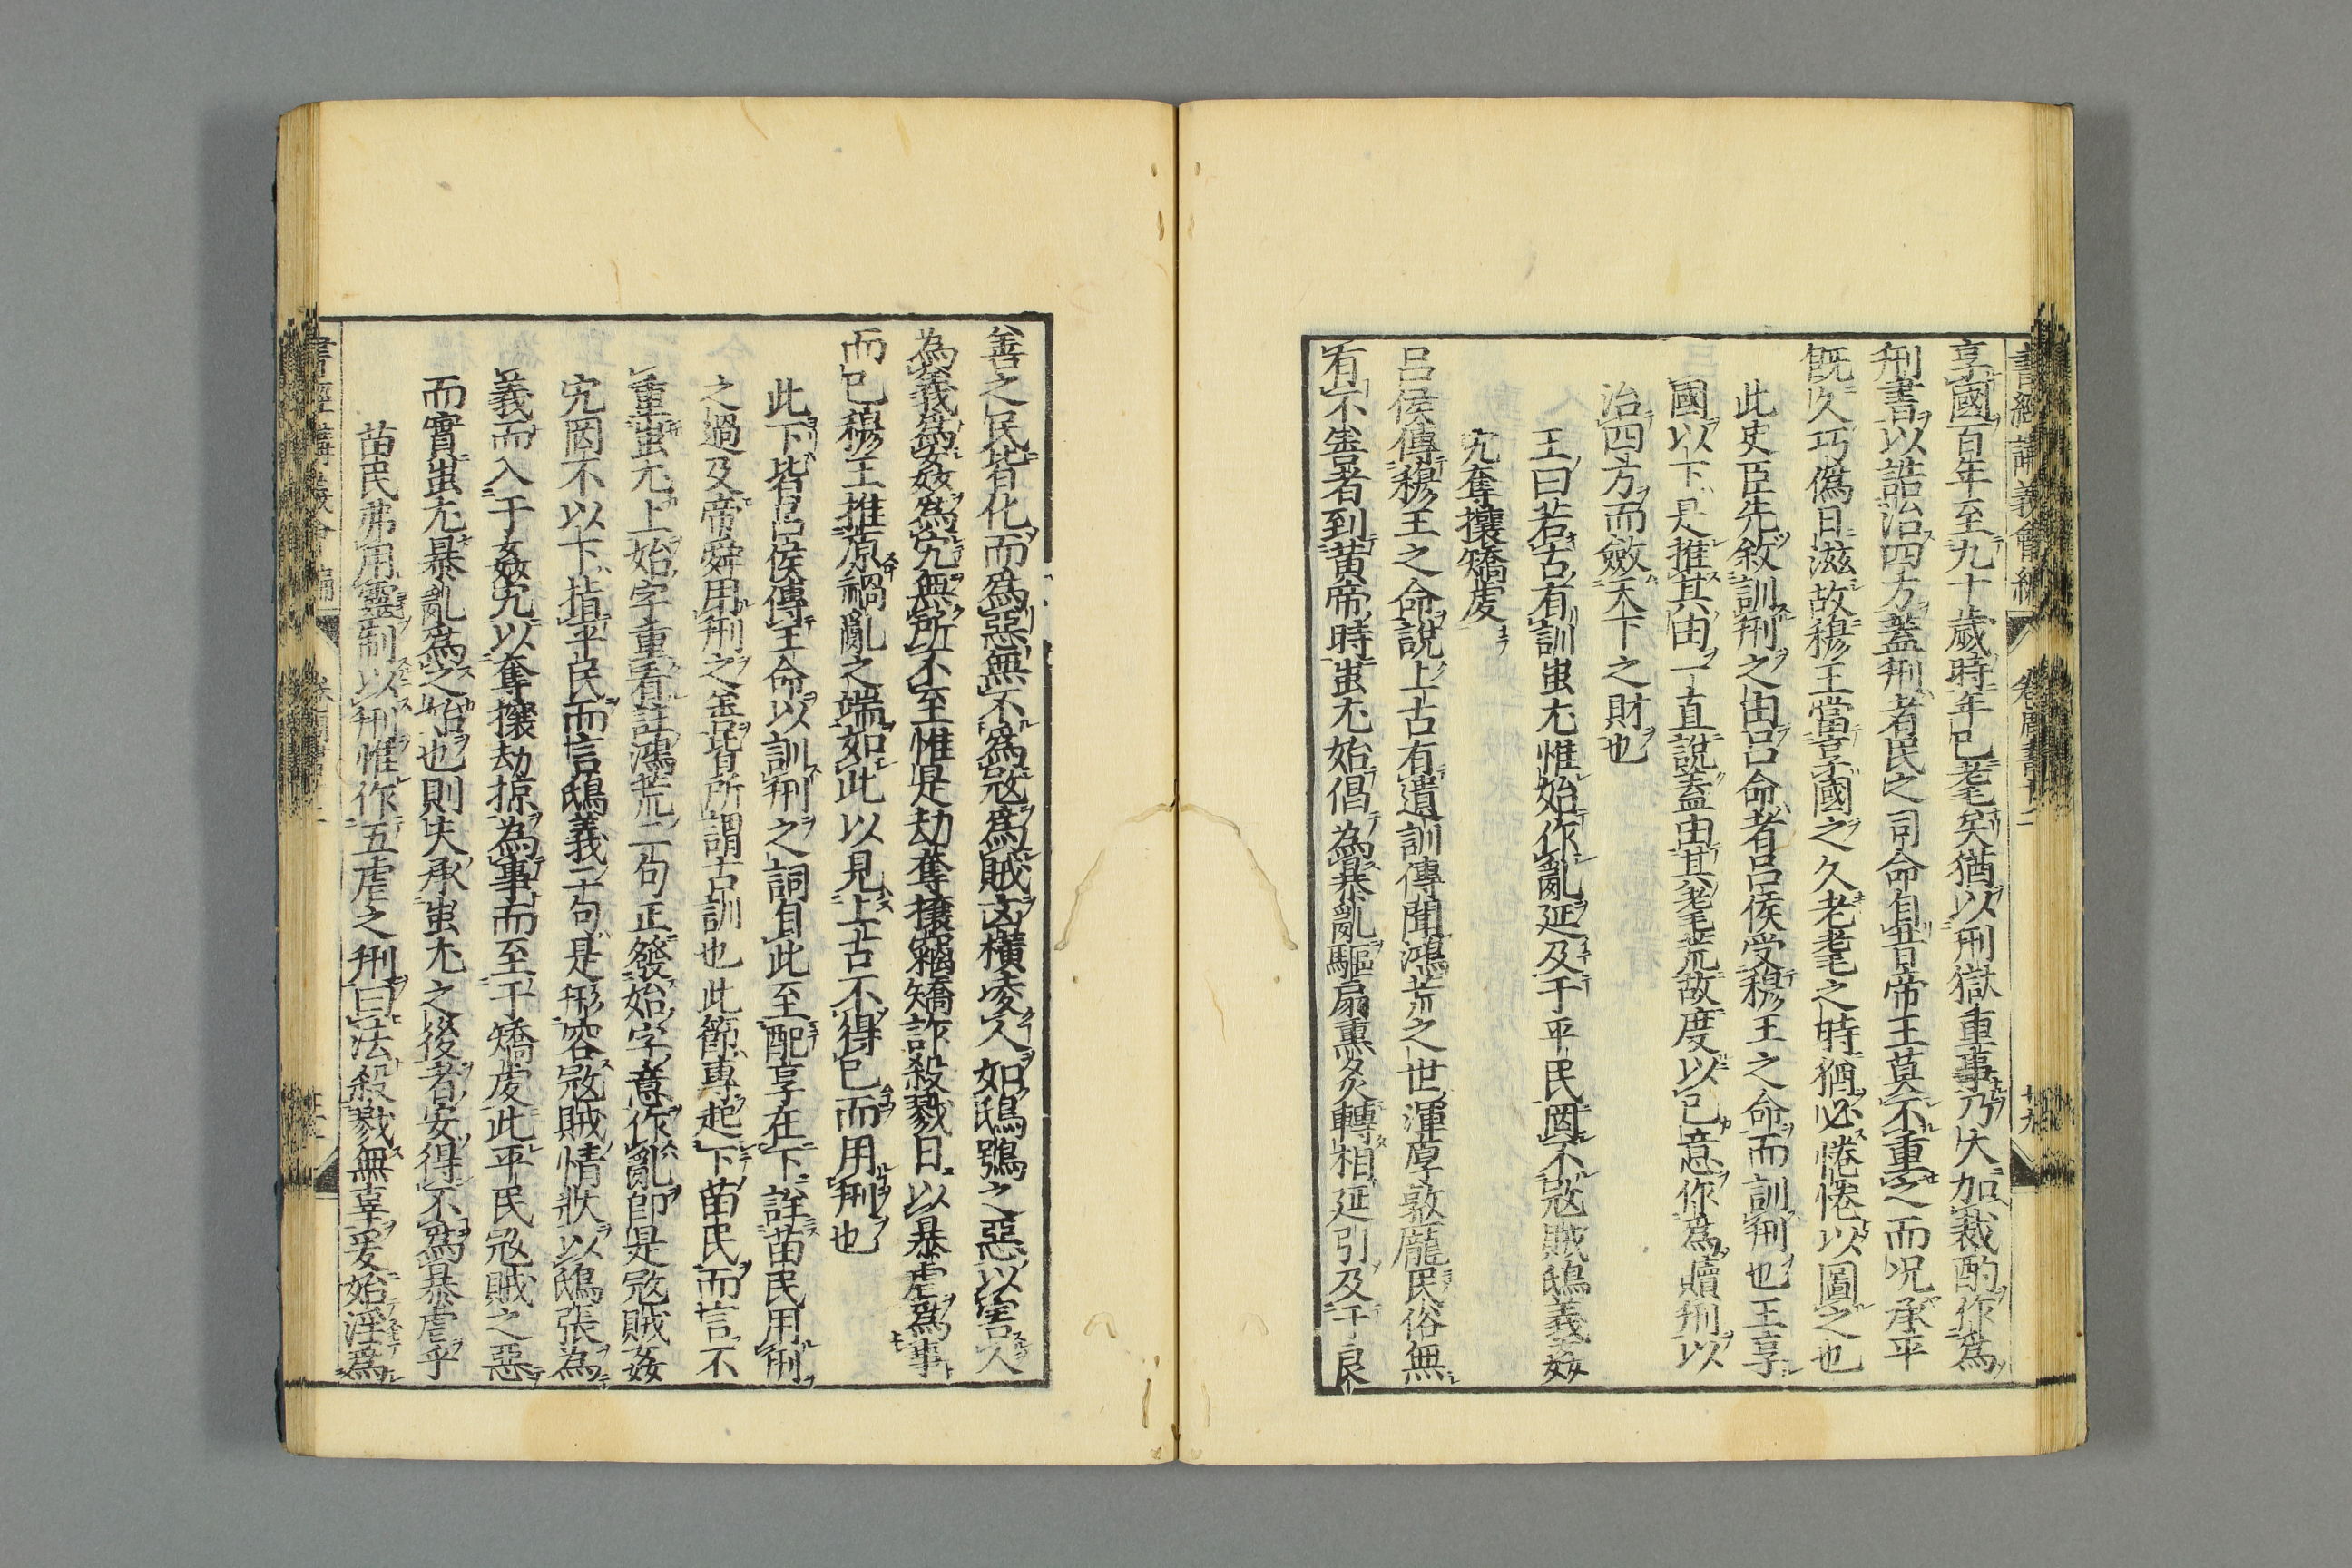 享國百年至九十歲時年已耄矣猶以刑獄重事乃大加裁酌作為
刑書以誥治四方蓋刑者民之司命自昔帝王莫不重之而況承平
既久巧偽日滋故穆王當享國之久老耄之時猶必惓惓以圖之也
此史臣先敘訓刑之由呂命者呂侯受穆王之命而訓刑也王享
國以下是推其由一直說蓋由其老耄荒故度以己意作為贖刑以
治四方而斂天下之財也
王曰若古有訓蚩尤惟始作亂延及于平民罔不寇賊鴟義姦
宄奪攘矯虔
呂侯傳穆王之命說上古有遺訓傳聞鴻荒之世渾厚敦龐民俗無
有不善者到黄帝時蚩尤始倡為暴亂驅扇熏炙轉相延引及于良
善之民皆化而為惡無不為寇為賊凶橫凌人如鴟鴞之惡以害人
為義為姦為宄無所不至惟是劫奪攘竊矯詐殺戮日以暴虐為事
而已穆王推原禍亂之端如此以見上古不得已而用刑也
此下皆呂侯傳王命以訓刑之詞自此至配享在下註苗民用刑
之過及帝舜用刑之善皆所謂古訓也此節專起下苗民而言不
重蚩尤上始字重看註鴻荒二句正發始字意作亂即是寇賊姦
宄罔不以下指平民而言鴟義二句是形容寇賊情狀以鴟張為
義而入于姦宄以奪攘劫掠為事而至于矯虔此平民寇賊之惡
而實蚩尤暴亂為之始也則夫承蚩尤之後者安得不為暴虐乎
苗民弗用靈制以刑惟作五虐之刑曰法殺戮無辜爰始淫為
書經講義會編